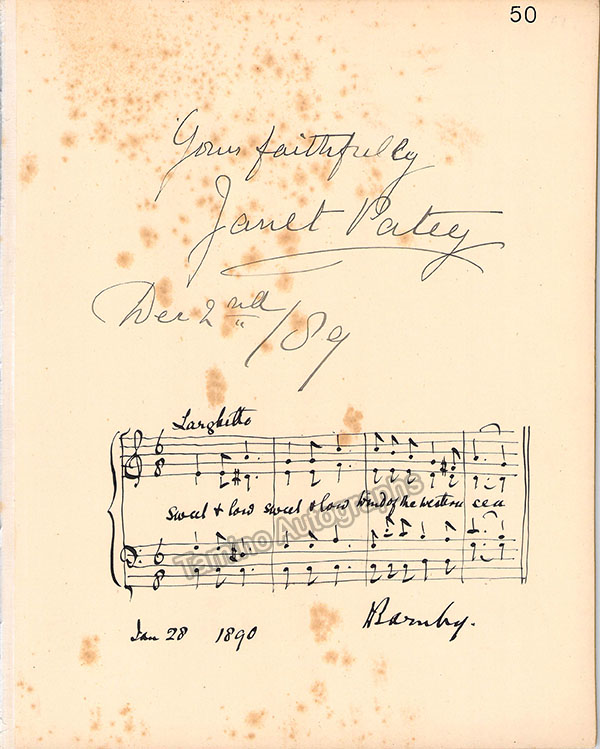 50
Yours faithfully
Janet Patey
Dec 2nd/89
Larghetto
6 8
Sweet & low sweet & low Wind of the western sea
6 8
Tamino Autographs
Jan 28 1890
Barnby.